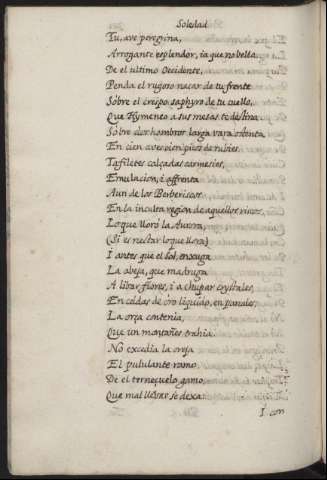 Soledad
Tu, ave peregrina,
Arrogante esplendor, ia que no bello
De el ultimo Occidente,
Penda el rugoso nacar de tu frente
Sobre el crespo saphyro de tu cuello,
Que Hymeneo a sus mesas te destina.
Sobre dos hombros larga vara ostenta,
En cien aves cien picos de rubies
Tafiletes calçadas carmesies,
Emulacion, i affrenta
Aun de los Berberiscos
En la inculta region de aquellos riscos.
Lo que lloró la Aurora,
(Si es nectar lo que llora)
I antes que el Sol, enxuga
La abeja, que madruga
A libar flores, i a chupar crystales,
En celdas de oro liquido, en panales,
La orça contenia,
Que un montañes trahia.
No excedia la oreja
El pululante ramo
De el ternezuelo gamo,
Que mal llevar se dexa
I con